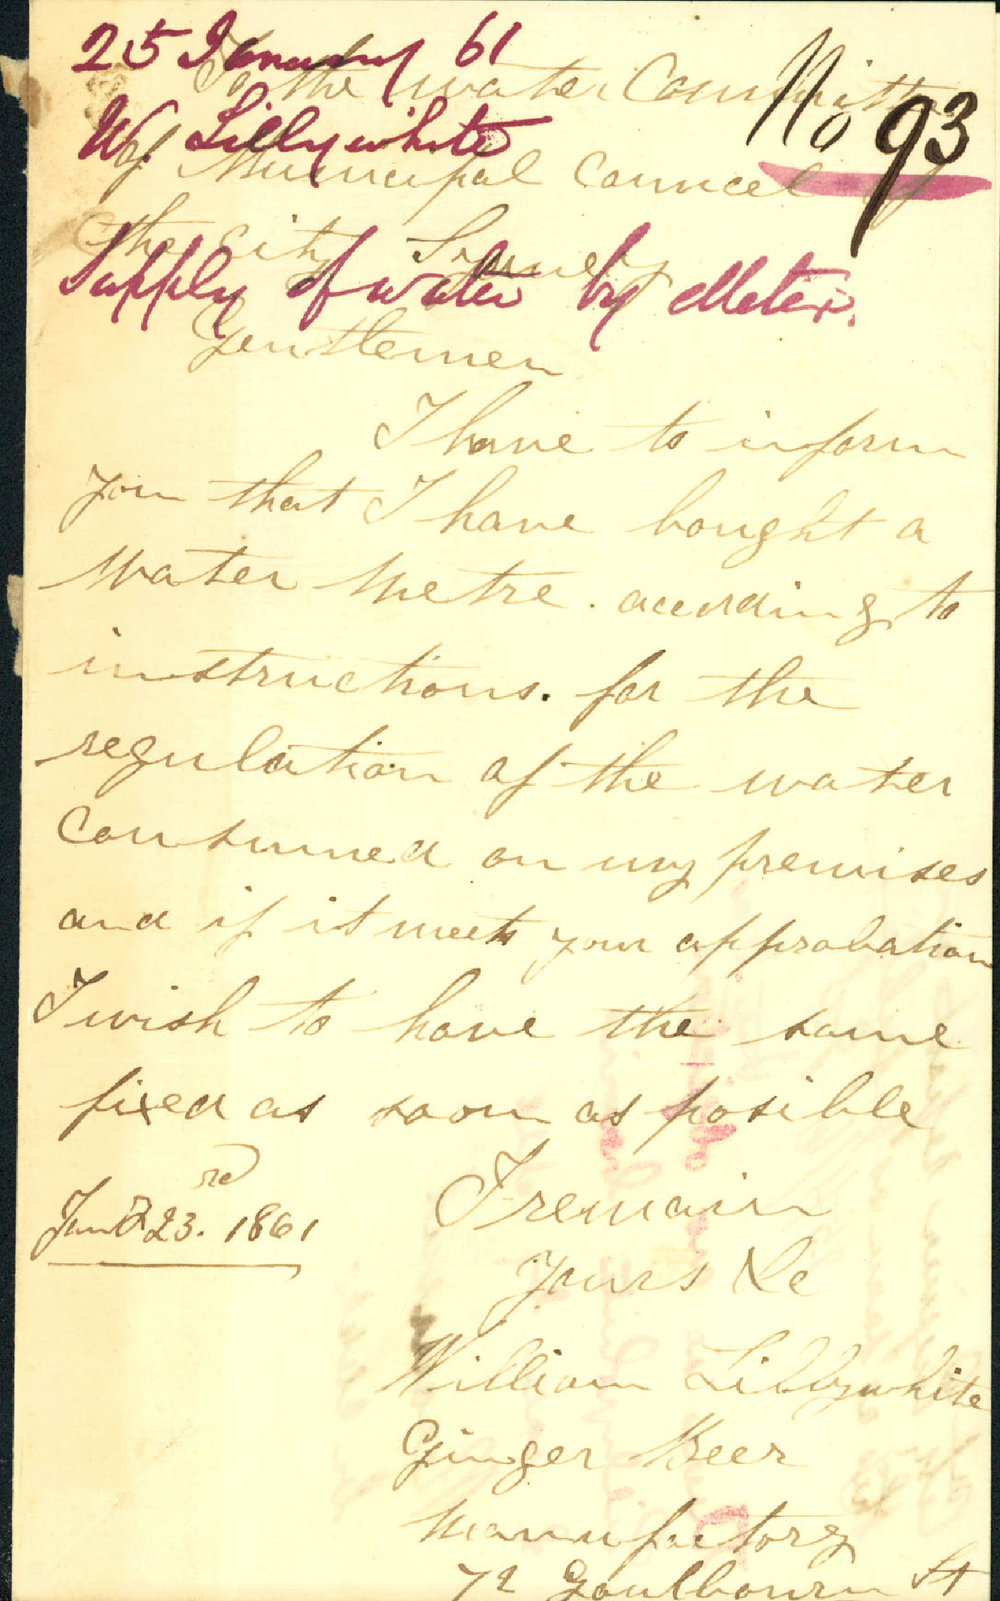 25 January 61
No 93
To the water Committee
W. Lillywhite
of Municipal Councel of
the city Sydney
Supply of water by Meter.
Gentlemen
I have to inform
you that I have bought a
Water Metre. according to
instructions. for the
regulation of the water
Consumed on my premises
and if it meets your approbation
I wish to have the same
fixed as soon as posible
I remain
Jany 23rd. 1861
Yours &c
William Lillywhite
Ginger Beer
Manufactory
72 Goulbourn St